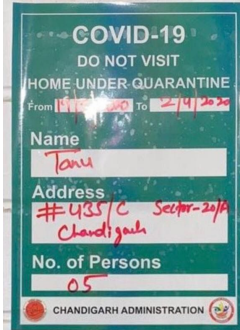 COVID-19
DO NOT VISIT
HOME UNDER QUARANTINE
From To 2/4/2020
Name
Tanu
Address
#435/C Sector-20/A
Chandigarh
No. of Persons
05
CHANDIGARH ADMINISTRATION